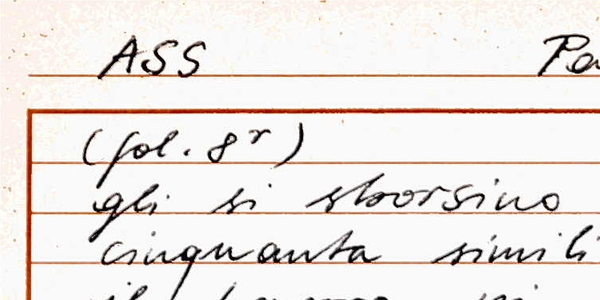 ASS
(fol. 8r)
gli si sborsino
cinquanta simili
il